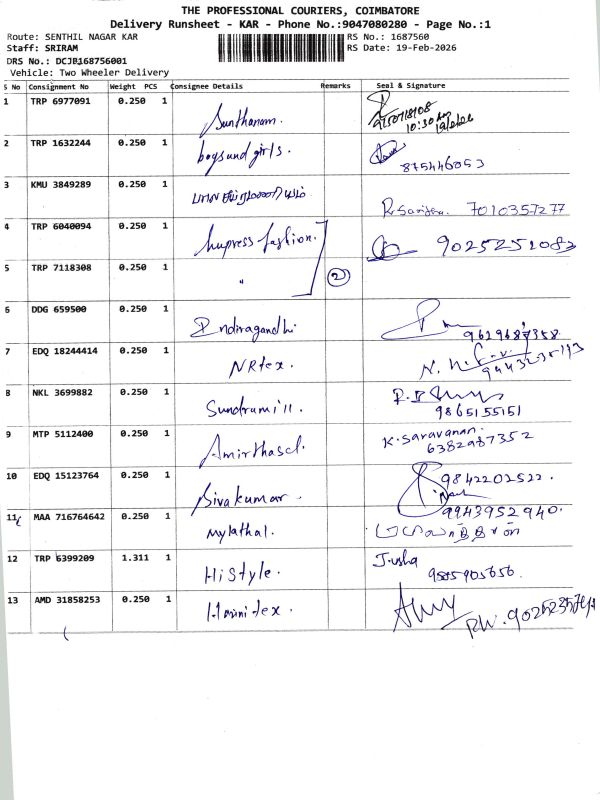 THE PROFESSIONAL COURIERS, COIMBATORE
Delivery Runsheet - KAR - Phone No.:9047080280 - Page No.:1
Route: SENTHIL NAGAR KAR RS No.: 1687560
Staff: SRIRAM RS Date: 19-Feb-2026
DRS No.: DCJB168756001
Vehicle: Two Wheeler Delivery
S No Consignment No Weight PCS Consignee Details Remarks Seal & Signature
1 TRP 6977091 0.250 1 Sunthanam. 9750718108
10:30 Am
19/2/26
2 TRP 1632244 0.250 1 boysund girls. 875446053
3 KMU 3849289 0.250 1 7010357277
4 TRP 6040094 0.250 1 hupress fashion. 9025251082
5 TRP 7118308 0.250 1 " 2
6 DDG 659500 0.250 1 Indiragandhi 9629687358
7 EDQ 18244414 0.250 1 NRtex. 9443235113
8 NKL 3699882 0.250 1 Sundramill. 9865155151
9 MTP 5112400 0.250 1 Amirthasel. K. Saravanan.
6382987352
10 EDQ 15123764 0.250 1 Sivakumar. 9842202522.
11 MAA 716764642 0.250 1 Mylathal. 9943952940.
12 TRP 6399209 1.311 1 HiStyle. J.usha
9585905656.
13 AMD 31858253 0.250 1